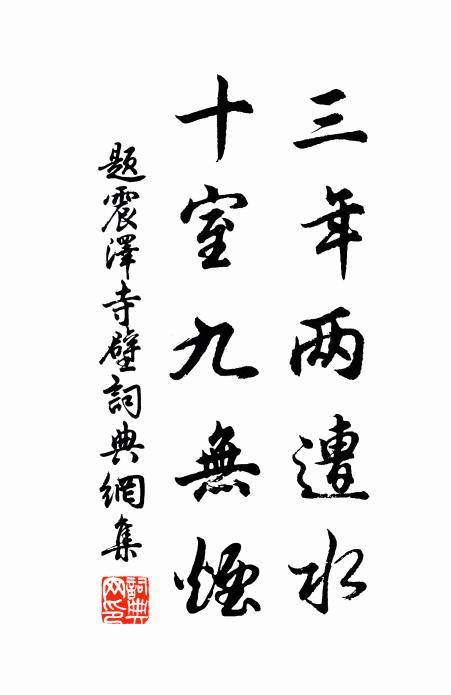 三年两遭水
十室九無煙
題震澤寺壁詞典網集
詞典網印